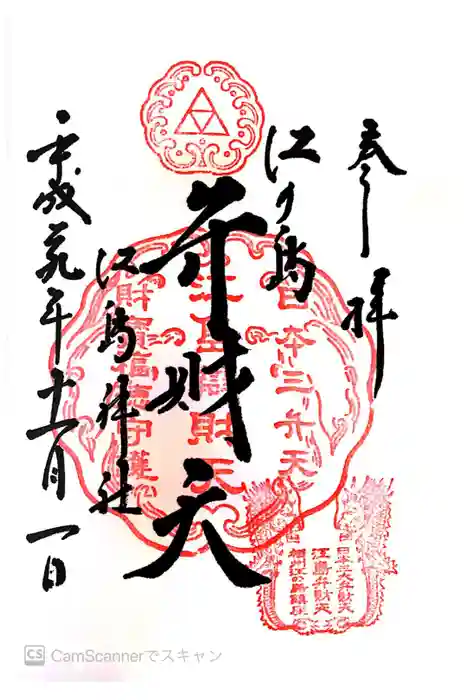 参拝
江の島
弁財天
江島神社
平成丗年十一月一日
日本三弁天
財寳福徳守護
日本三大弁財天
江島弁財天
CS CamScannerでスキャン